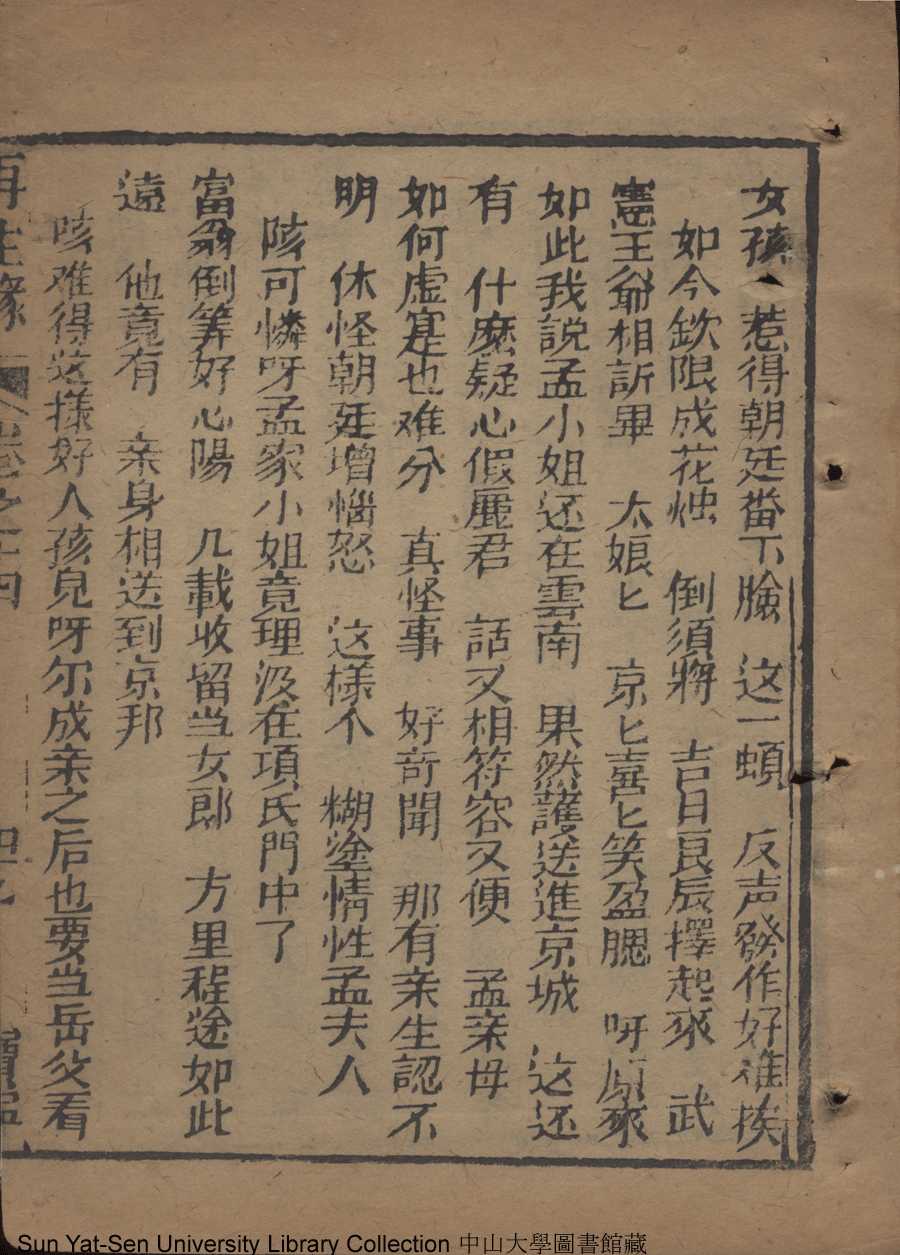 女孩 惹得朝廷番下臉 这一頓 反声發作好难挨
如今欽限成花烛 倒須將 吉日良辰擇起來 武
憲王爺相訴畢 太娘匕 京匕喜匕笑盈腮 呀原來
如此我説孟小姐还在雲南 果然護送進京城 这还
有 什麽疑心假麗君 話又相符容又便 孟亲母
如何虚寔也难分 真怪事 好奇聞 那有亲生認不
明 休怪朝廷增惱怒 这様不 糊塗情性孟夫人
陔可憐呀孟家小姐竟理没在項氏門中了
富翁倒筭好心陽 几載收留当女郎 方里程途如此
遠 他竟有 亲身相送到京邦
咳难得这様好人孩兒呀尔成亲之后也要当岳父看
再生緣 卷之十四
Sun Yat-Sen University Library Collection 中山大學圖書館藏